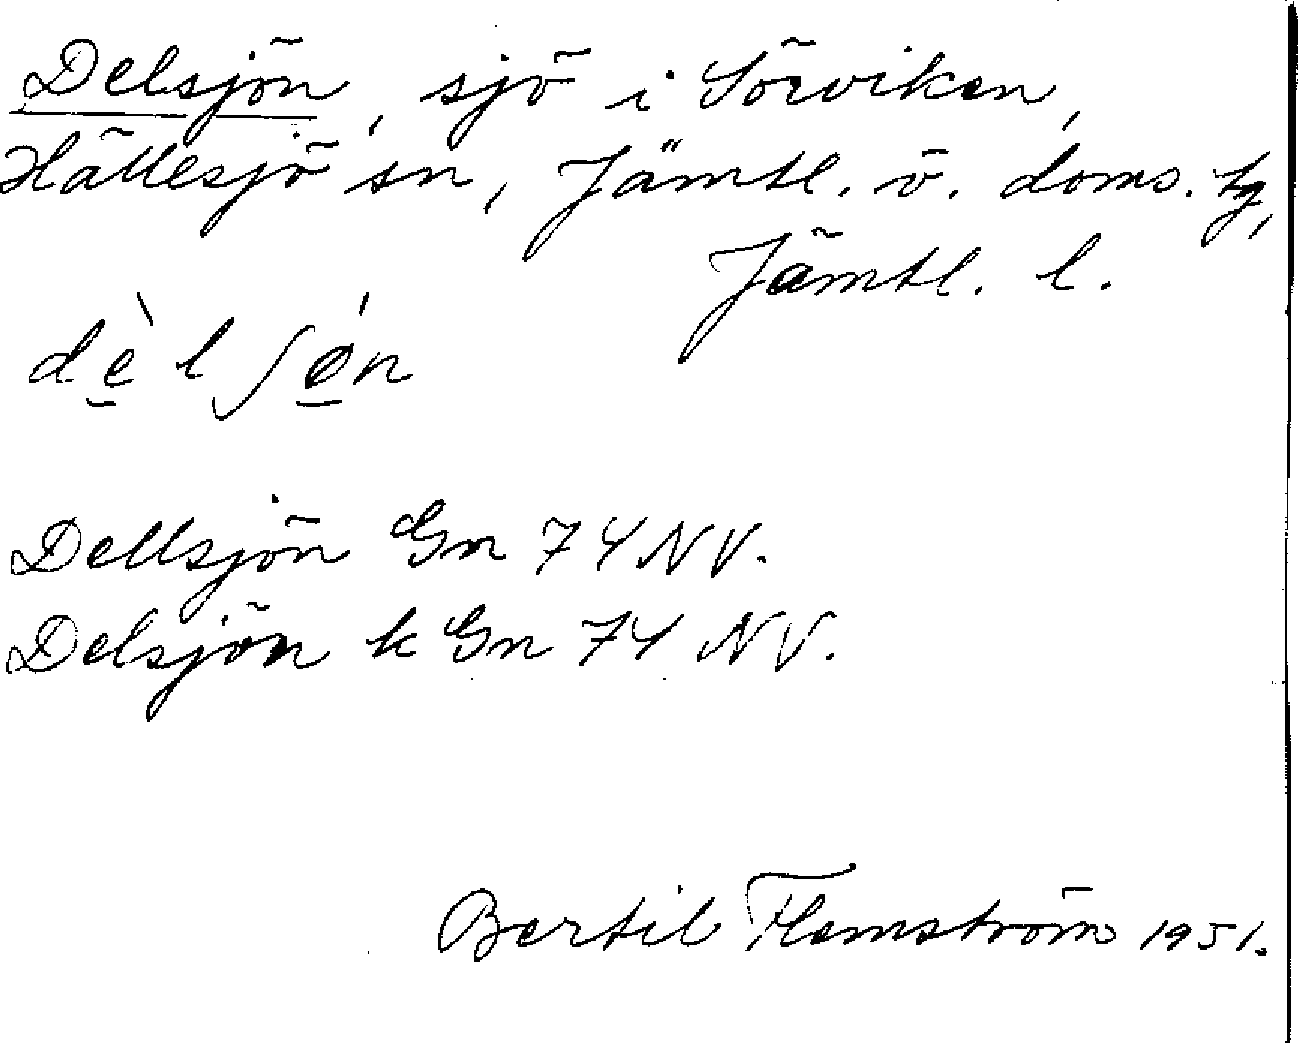 Delsjön, sjö i Sörviken,
Hällesjö sn, Jämtl. ö. doms. tg,
Jämtl. l.
dè̱l ʃǿ̱n
Dellsjön Gn 74 NV.
Delsjön k Gn 74 NV.
Bertil Flemström 1951.